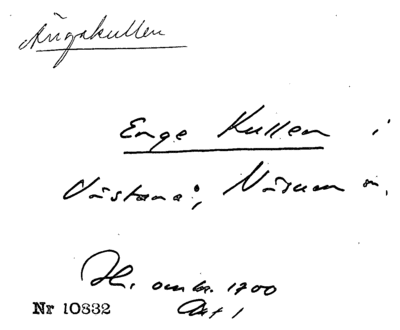 Ängakullen
Enge Kullen i
Västanå, Näsum sn.
omkr. 1700
Nr 10832
Akt 1